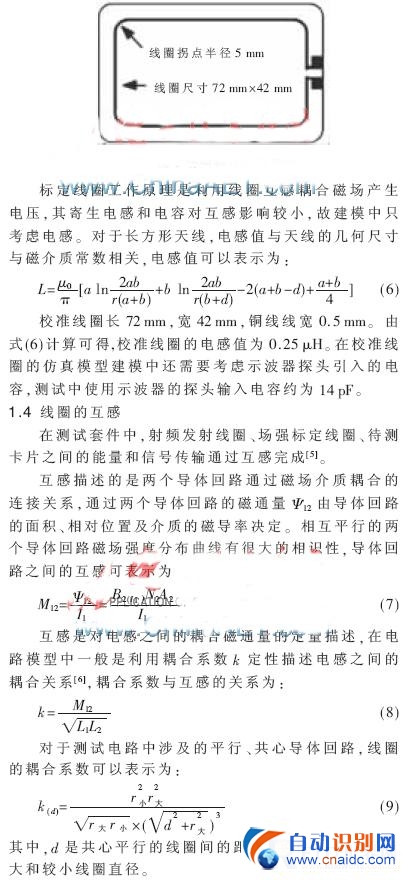 线圈拐点半径 5 mm
线圈尺寸 72 mm×42 mm
标定线圈工作原理是利用线圈互感耦合磁场产生
电压,其寄生电感和电容对互感影响较小,故建模中只
考虑电感。对于长方形天线,电感值与天线的几何尺寸
与磁介质常数相关,电感值可以表示为:
L=μ₀/π[a ln 2ab/r(a+b)+b ln 2ab/r(b+d)-2(a+b-d)+a+b/4] (6)
校准线圈长 72 mm,宽 42 mm,铜线线宽 0.5 mm。由
式(6)计算可得,校准线圈的电感值为 0.25 μH。在校准线
圈的仿真模型建模中还需要考虑示波器探头引入的电
容,测试中使用示波器的探头输入电容约为 14 pF。
1.4 线圈的互感
在测试套件中,射频发射线圈、场强标定线圈、待测
卡片之间的能量和信号传输通过互感完成[5]。
互感描述的是两个导体回路通过磁场介质耦合的
连接关系,通过两个导体回路的磁通量 Ψ12 由导体回路
的面积、相对位置及介质的磁导率决定。相互平行的两
个导体回路磁场强度分布曲线有很大的相识性,导体回
路之间的互感可表示为
M12=Ψ12/I1= /I1 (7)
互感是对电感之间的耦合磁通量的定量描述,在电
路模型中一般是利用耦合系数 k 定性描述电感之间的
耦合关系[6],耦合系数与互感的关系为:
k=M12/√L1L2 (8)
对于测试电路中涉及的平行、共心导体回路,线圈
的耦合系数可以表示为:
k(d)=r小²r大²/√r大r小×(√d²+r大²)³ (9)
其中,d 是共心平行的线圈间的距
大和较小线圈直径。
自动识别网
www.cnaidc.com